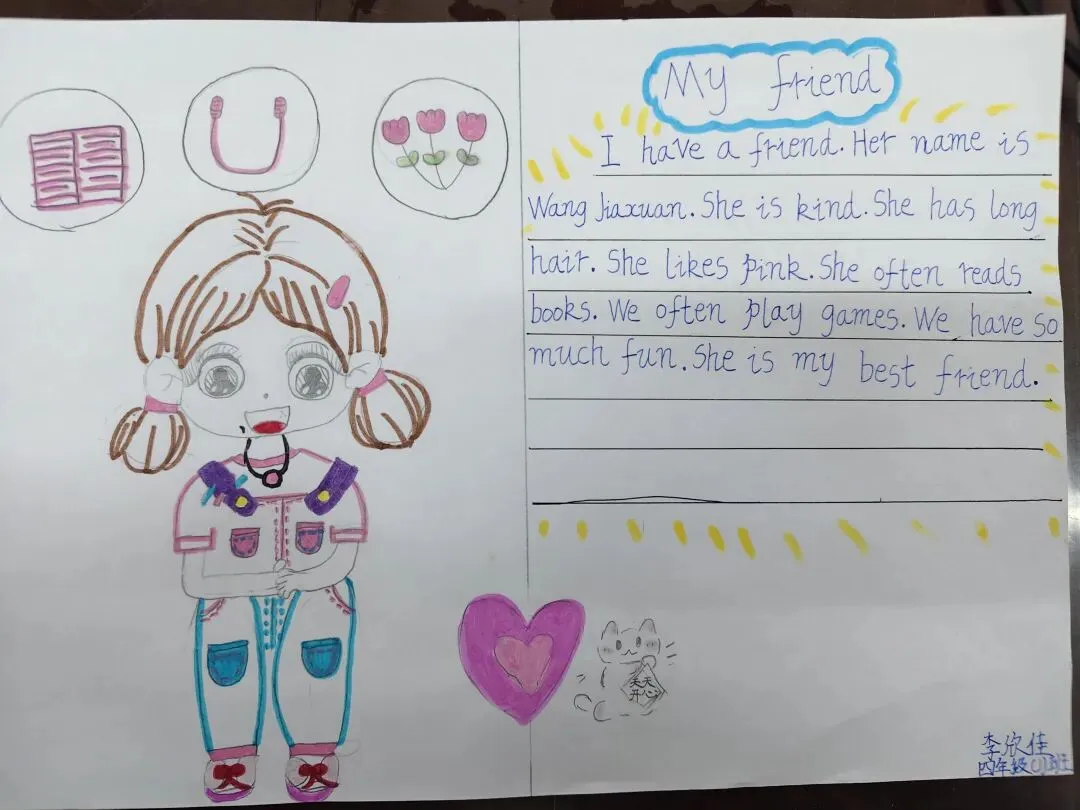 My friend
I have a friend. Her name is
Wang Jiaxuan. She is kind. She has long
hair. She likes pink. She often reads
books. We often play games. We have so
much fun. She is my best friend.
天天
开心
李欣佳
四年级(1)班